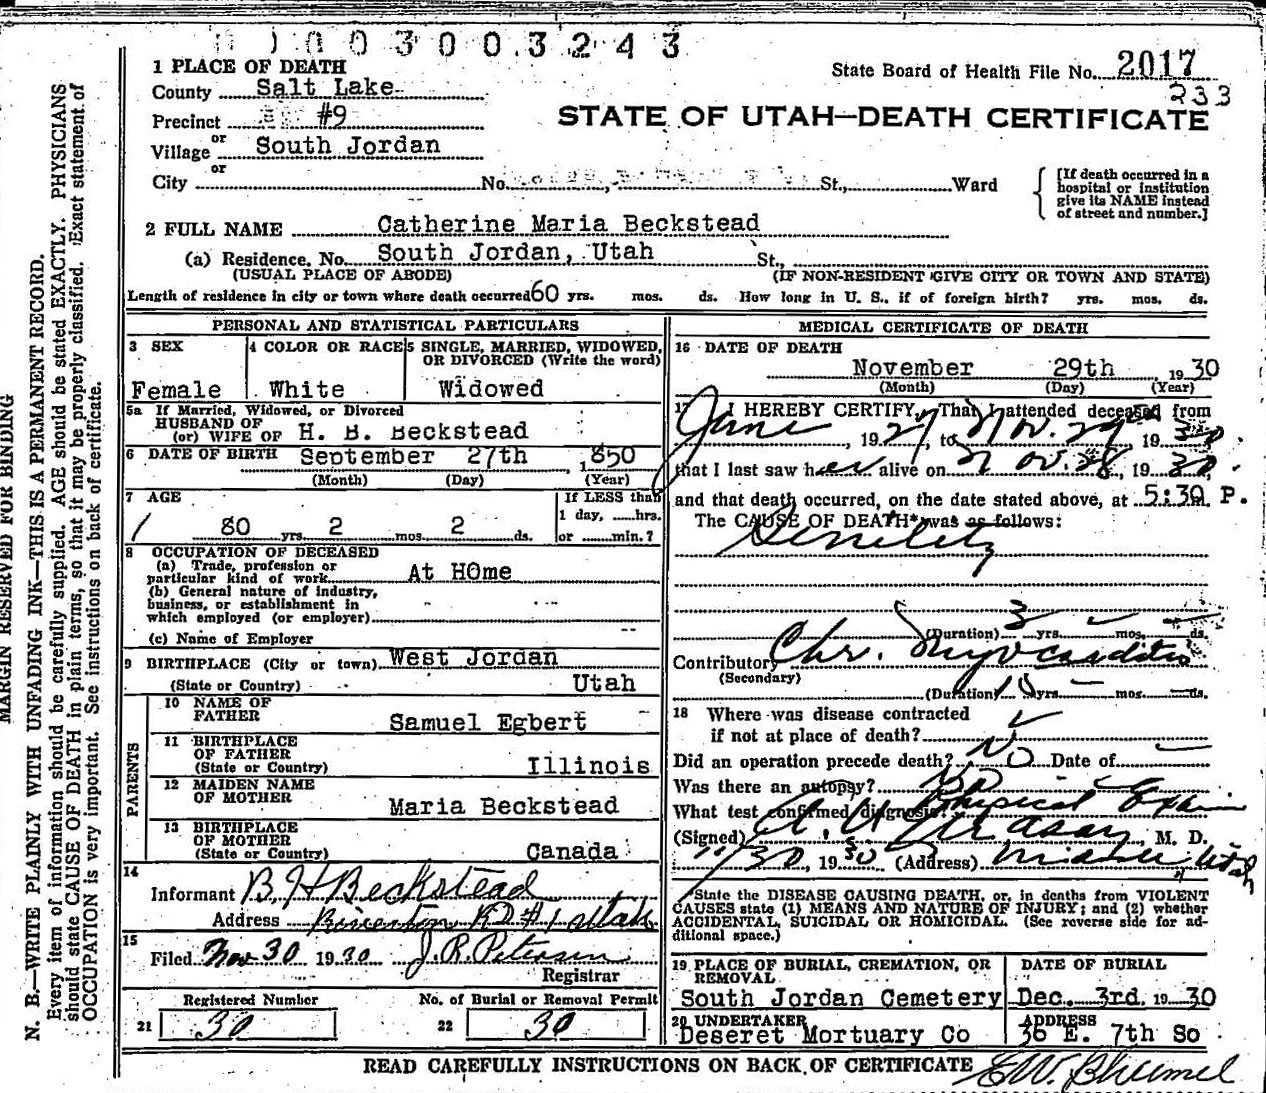 0003003243
1 PLACE OF DEATH
State Board of Health File No. 2017
233
County Salt Lake
STATE OF UTAH—DEATH CERTIFICATE
Precinct #9
or
Village South Jordan
or
City No. St., Ward
[If death occurred in a
hospital or institution
give its NAME instead
of street and number.]
2 FULL NAME Catherine Maria Beckstead
(a) Residence. No. South Jordan, Utah St.,
(USUAL PLACE OF ABODE) (IF NON-RESIDENT GIVE CITY OR TOWN AND STATE)
Length of residence in city or town where death occurred 60 yrs. mos. ds. How long in U. S., if of foreign birth? yrs. mos. ds.
PERSONAL AND STATISTICAL PARTICULARS
3 SEX
Female
4 COLOR OR RACE
White
5 SINGLE, MARRIED, WIDOWED,
OR DIVORCED (Write the word)
Widowed
5a If Married, Widowed, or Divorced
HUSBAND OF
(or) WIFE OF H. B. Beckstead
6 DATE OF BIRTH September 27th 1850
(Month) (Day) (Year)
7 AGE
80 yrs. 2 mos. 2 ds.
If LESS than
1 day, hrs.
or min.?
8 OCCUPATION OF DECEASED
(a) Trade, profession or
particular kind of work At HOme
(b) General nature of industry,
business, or establishment in
which employed (or employer)
(c) Name of Employer --
9 BIRTHPLACE (City or town) West Jordan
(State or Country) Utah
PARENTS
10 NAME OF
FATHER Samuel Egbert
11 BIRTHPLACE
OF FATHER
(State or Country) Illinois
12 MAIDEN NAME
OF MOTHER Maria Beckstead
13 BIRTHPLACE
OF MOTHER
(State or Country) Canada
14
Informant B. H Beckstead
Address Riverton RD #1 Utah
15
Filed Nov 30 1930 J. R. Petersen
Registrar
Registered Number
21 30
No. of Burial or Removal Permit
22 30
MEDICAL CERTIFICATE OF DEATH
16 DATE OF DEATH
November 29th, 1930
(Month) (Day) (Year)
17 I HEREBY CERTIFY, That I attended deceased from
June 27, 1927, to Nov. 29, 1930.
that I last saw her alive on Nov. 28, 1930.
and that death occurred, on the date stated above, at 5:30 m. P.
The CAUSE OF DEATH* was as follows:
Senility
(Duration) 3 yrs. — mos. — ds.
Contributory Chr. Myocarditis
(Secondary)
(Duration) 10 yrs. — mos. — ds.
18 Where was disease contracted
if not at place of death?
Did an operation precede death? No Date of —
Was there an autopsy? No
What test confirmed diagnosis? Physical Exam
(Signed) M. D.
11/30, 1930 (Address) Midvale, Utah
*State the DISEASE CAUSING DEATH, or, in deaths from VIOLENT
CAUSES state (1) MEANS AND NATURE OF INJURY; and (2) whether
ACCIDENTAL, SUICIDAL OR HOMICIDAL. (See reverse side for ad-
ditional space.)
19 PLACE OF BURIAL, CREMATION, OR
REMOVAL
South Jordan Cemetery
DATE OF BURIAL
Dec. 3rd. 1930
20 UNDERTAKER
Deseret Mortuary Co
ADDRESS
36 E. 7th So
READ CAREFULLY INSTRUCTIONS ON BACK OF CERTIFICATE
MARGIN RESERVED FOR BINDING
N. B.—WRITE PLAINLY WITH UNFADING INK—THIS IS A PERMANENT RECORD.
Every item of information should be carefully supplied. AGE should be stated EXACTLY. PHYSICIANS
should state CAUSE OF DEATH in plain terms, so that it may be properly classified. Exact statement of
OCCUPATION is very important. See instructions on back of certificate.